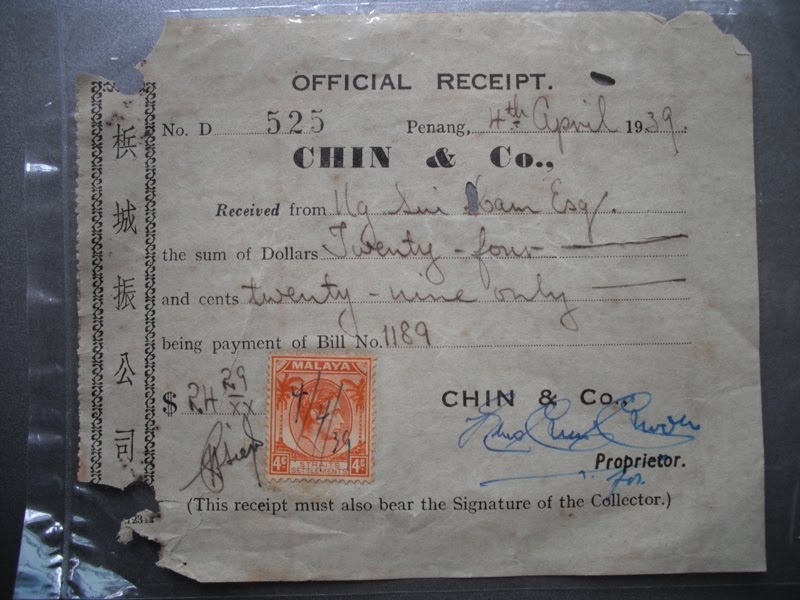 OFFICIAL RECEIPT.
No. D 525 Penang, 4th April 1939.
CHIN & Co.,
Received from Ng Sui Kam Esq.
the sum of Dollars Twenty-four
and cents twenty-nine only
being payment of Bill No. 1189
$ 24 29/xx
MALAYA
4/4/39
4c STRAITS SETTLEMENTS 4c
CHIN & Co.,
Proprietor.
for
(This receipt must also bear the Signature of the Collector.)
梹城振公司